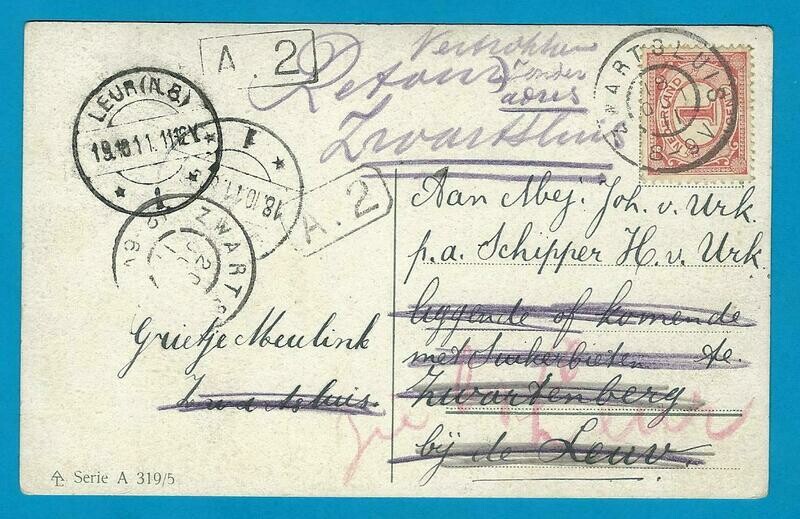 A. 2
Vertrokken
Retour zonder
adres
Zwartsluis
ZWARTSLUIS
NEDERLAND
1
LEUR (N.B.)
19.10.11. 11-12V
1
1
18.10.11.
A. 2
ZWARTS
Aan Mej. Joh. v. Urk.
p.a. Schipper H. v. Urk
liggende of komende
met Suikerbieten te.
Zwartenberg
bij de Leur.
Grietje Meulink
Zwartsluis.
Leur
Serie A 319/5